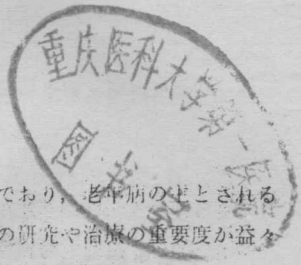 重庆医科大学第一医院
图书
であり，老年病の主とされる
の研究や治療の重要度が益々